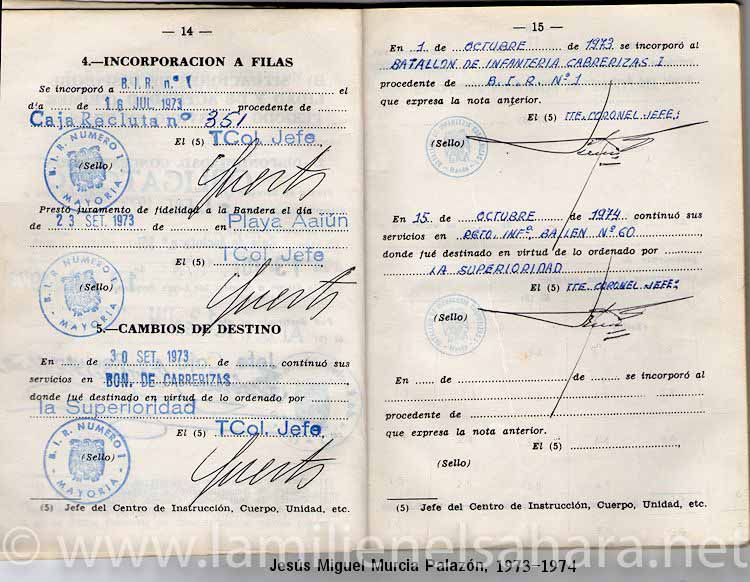 — 14 —
4.—INCORPORACION A FILAS
Se incorporó a B.I.R. nº 1 el
día 16 JUL 1973 procedente de
Caja Recluta nº 351
El (5) TCol. Jefe
(Sello)
B. I. R. NUMERO 1
MAYORIA
Prestó juramento de fidelidad a la Bandera el día
23 SET. 1973 de en Playa Aaiún
El (5) TCol. Jefe
(Sello)
B. I. R. NUMERO 1
MAYORIA
5.—CAMBIOS DE DESTINO
En de 30 SET. 1973 de continuó sus
servicios en BON. DE CABRERIZAS
donde fué destinado en virtud de lo ordenado por
la Superioridad
El (5) TCol. Jefe
(Sello)
B. I. R. NUMERO 1
MAYORIA
(5) Jefe del Centro de Instrucción, Cuerpo, Unidad, etc.
— 15 —
En 1 de OCTUBRE de 1973 se incorporó al
BATALLON DE INFANTERIA CABRERIZAS I
procedente de B.I.R. Nº 1
que expresa la nota anterior.
El (5) TTE. CORONEL JEFE;
(Sello)
En 15 de OCTUBRE de 1974 continuó sus
servicios en RGTO. INFª. BAILEN Nº 60
donde fué destinado en virtud de lo ordenado por
LA SUPERIORIDAD
El (5) TTE. CORONEL JEFE;
(Sello)
En de de se incorporó al
procedente de
que expresa la nota anterior.
El (5)
(Sello)
(5) Jefe del Centro de Instrucción, Cuerpo, Unidad, etc.
© www.lamilienelsahara.net
Jesús Miguel Murcia Palazón, 1973-1974